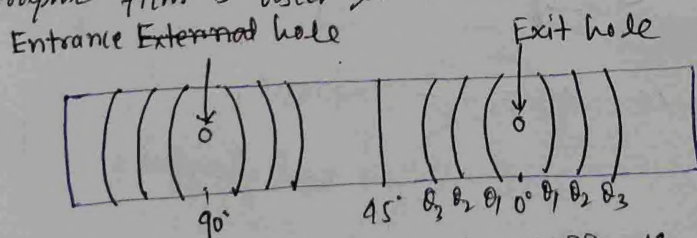 Entrance External hole
Exit hole
90° 45° θ3 θ2 θ1 0° θ1 θ2 θ3